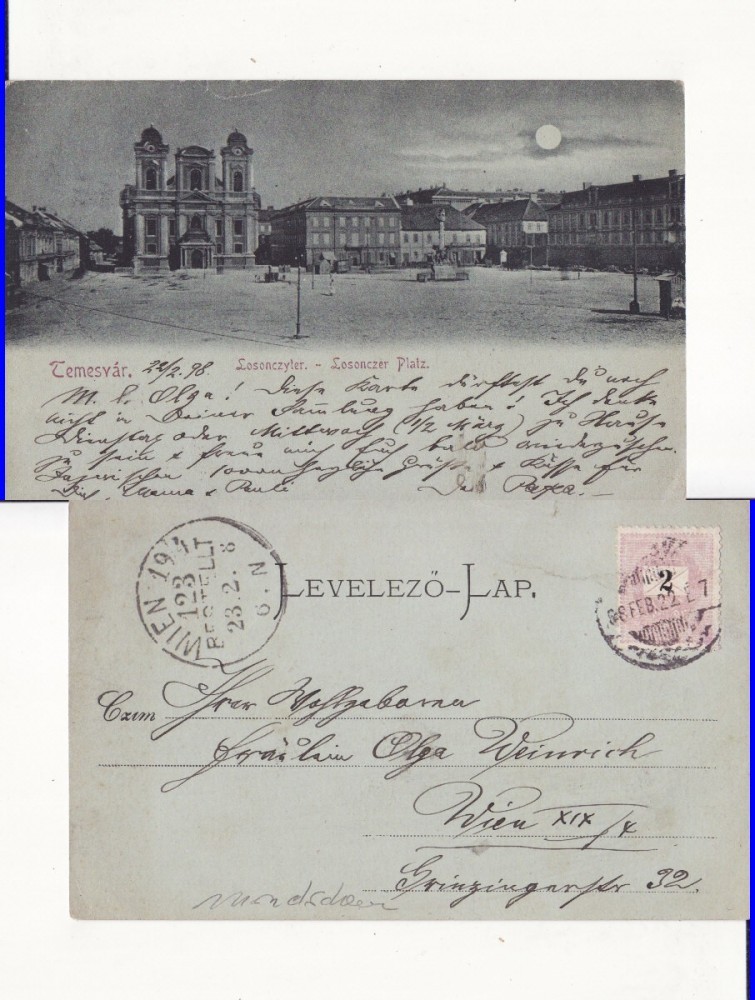 Temesvár. 22/2. 98. Losonczyter. - Losonczer Platz.
M. l. Olga! Diese Karte dürftest Du noch
nicht in Deiner Sammlung haben! Ich denke
Dienstag oder Mittwoch (1/2 März) zu Hause
zu sein & freue mich Euch bald wiederzusehen.
Inzwischen 1000 herzliche Grüße & Küsse für
Dich, Mama & Pauli Dein Papa.
WIEN 19/4
123
BESTELLT
23.2.8
6.N
LEVELEZŐ-LAP.
2
98 FEB. 22
Czim Ihrer Wohlgeboren
Fräulein Olga Weinrich
Wien XIX/4
Grinzingerstr 32.